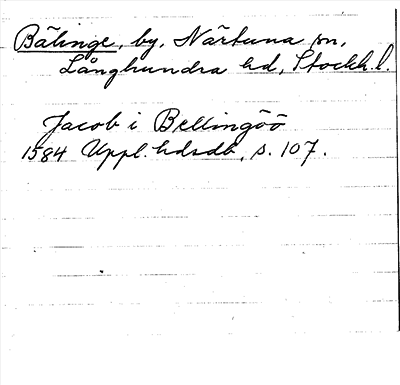 Bälinge, by, Närtuna sn,
Långhundra hd, Stockh. l.
Jacob i Bellingöö
1584 Uppl. hdsdb, s. 107.